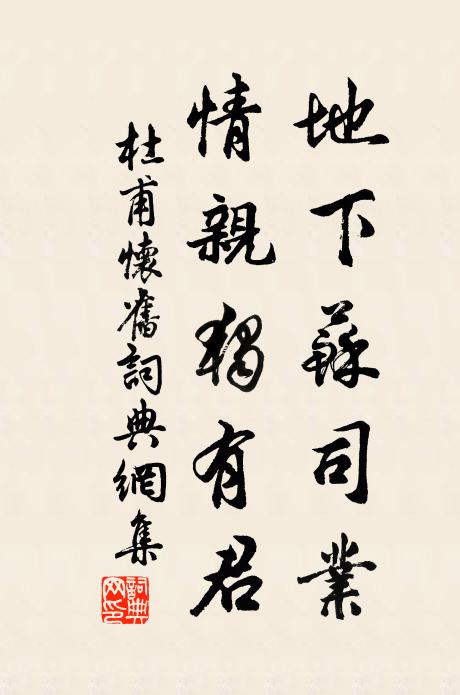 地下蘇司業
情親獨有君
杜甫懷舊詞典網集
詞典網印